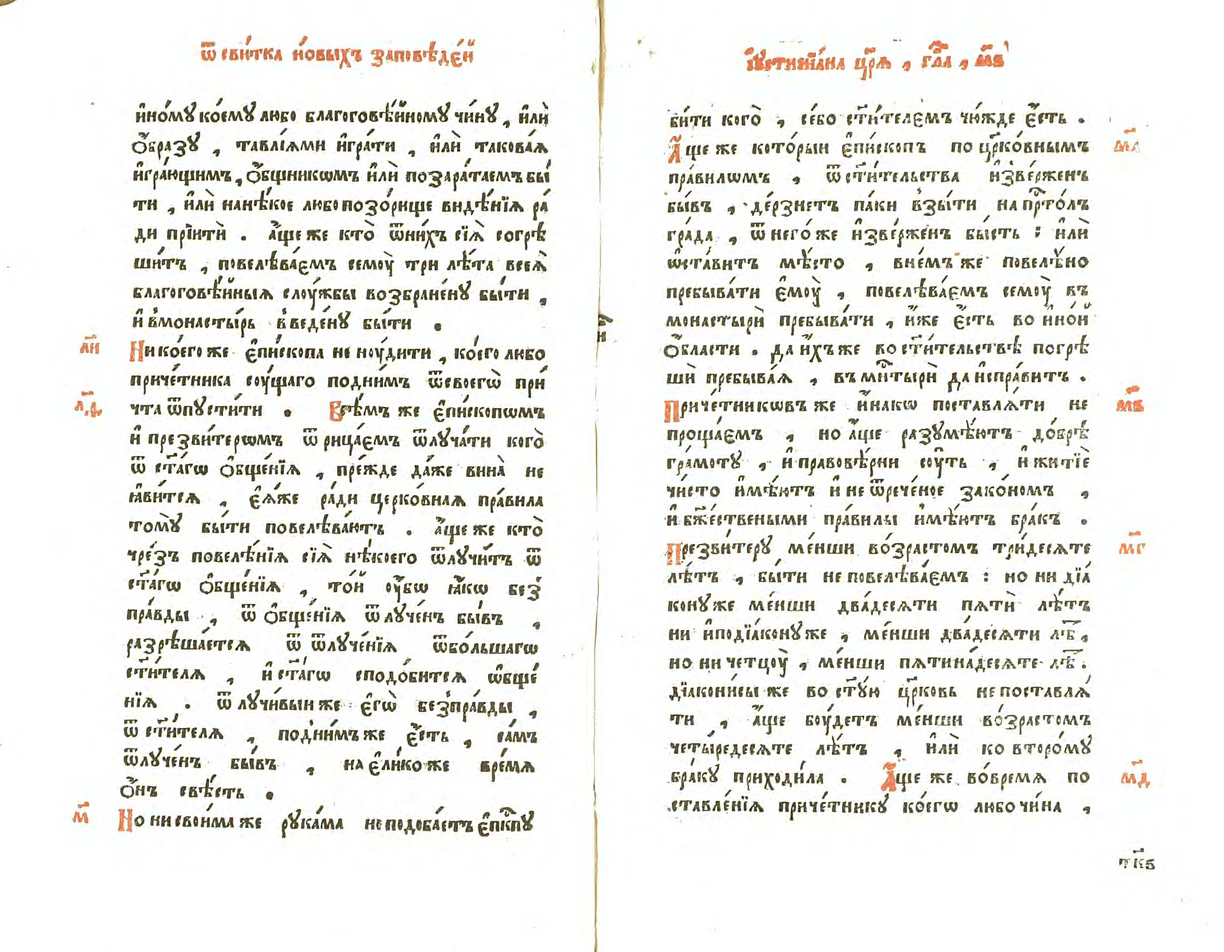 ѿ сви́тка но́выхъ заповѣде́й
и҆но́мꙋ ко́емꙋ любо благоговѣ́йномꙋ чи́нꙋ , и҆лѝ
ѻ҆́бразꙋ , тавлі́ѧми и҆гра́ти , и҆лѝ такова́ѧ
и҆гра́ющимъ , ѻ҆́бщникѡмъ и҆лѝ позара́таемъ бы́
ти , и҆лѝ нанѣ́кое любо позо́рище ви́дѣнїѧ ра́
ди прїитѝ . а҆́ще же кто̀ ѿни́хъ сїѧ̀ согрѣ
ши́тъ , повелѣва́ємъ семꙋ̀ три лѣ́та всеѧ̀
благоговѣ́йныѧ слꙋ́жбы возбране́нꙋ бы́ти ,
и҆ вмонасты́рь введе́нꙋ бы́ти .
л҃и
Ни ко́его же є҆пи́скопа не нꙋ́дити , ко́его любо
приче́тника сꙋ́щаго подни́мъ ѿсвоегѡ̀ при́
л҃ѳ
чта ѿпꙋсти́ти . Всѣ́мъ же є҆пи́скопѡмъ
и҆ презви́терѡмъ ѿрица́ємъ ѿлꙋча́ти кого̀
ѿ ст҃а́гѡ ѻ҆бще́нїѧ , пре́жде да́же вина̀ не
ꙗ҆ви́тсѧ , є҆ѧ́же ра́ди церко́внаѧ пра́вила
томꙋ̀ бы́ти повелѣва́ютъ . а҆́ще же кто̀
чре́зъ повелѣ́нїѧ сїѧ̀ нѣ́коего ѿлꙋчи́тъ ѿ
ст҃а́гѡ ѻ҆бще́нїѧ , то́й ᲂу҆́бѡ ꙗ҆́кѡ без̾
пра́вды , ѿ ѻ҆бще́нїѧ ѿлꙋче́нъ бы́въ ,
разрѣша́етсѧ ѿ ѿлꙋче́нїѧ ѿбо́льшагѡ
ст҃и́телѧ , и҆ ст҃а́гѡ сподо́битсѧ ѡ҆бще́
нїѧ . ѿлꙋчи́выи же є҆гѡ̀ безпра́вды ,
ѿ ст҃и́телѧ , подни́мъ же є҆́сть , са́мъ
ѿлꙋче́нъ бы́въ , на є҆ли́ко же вре́мѧ
ѻ҆́нъ свѣ́сть .
м҃
Но ни свои́ма же рꙋка́ма не подоба́етъ є҆пⷭ҇кпꙋ
і҆ꙋстинїа́на цр҃ѧ̀ , гла҃ , м҃в
би́ти кого̀ , се бо ст҃и́телємъ чю́жде є҆́сть .
м҃а
А҆́ще же кото́рыи є҆пи́скопъ по цр҃ко́внымъ
пра́вилѡмъ , ѿ ст҃и́тельства и҆зве́рженъ
бы́въ , де́рзнетъ па́ки взы́ти на прⷭ҇то́лъ
гра́да , ѿ него́же и҆зве́рженъ бы́сть : и҆лѝ
ѡ҆ста́витъ мѣ́сто , вне́мъ же повелѣ́но
пребыва́ти є҆мꙋ̀ , повелѣва́ємъ семꙋ̀ въ
монастырѝ пребыва́ти , и҆́же є҆́сть во и҆но́й
ѻ҆́бласти . да и҆́хъже во ст҃и́тельствѣ погрѣ
шѝ пребыва́ѧ , въ мнⷭ҇тырѝ да и҆спра́витъ .
м҃в
Приче́тникѡвъ же и҆на́кѡ поставлѧ́ти не
проща́емъ , но а҆́ще разꙋмѣ́ютъ до́брѣ
гра́мотꙋ , и҆ правовѣ́рни сꙋ́ть , и҆ житїѐ
чи́сто и҆мѣ́ютъ и҆ не ѿрече́ное зако́номъ ,
и҆ бж҃е́ствеными пра́вилы и҆мѣ́ютъ бра́къ .
м҃г
Презви́терꙋ ме́нши во́зрастомъ три́десѧте
лѣ́тъ , бы́ти не повелѣва́емъ : но ни дїа́
конꙋ же ме́нши два́десѧти пѧтѝ лѣ́тъ
ни и҆подїа́конꙋ же , ме́нши два́десѧти лѣ́т ,
но ни четцꙋ̀ , ме́нши пѧтина́десѧте лѣ́т .
дїакони́сы же во ст҃ꙋ́ю цр҃ковь не поставлѧ́
ти , а҆́ще бꙋ́детъ ме́нши во́зрастомъ
четы́редесѧте лѣ́тъ , и҆лѝ ко второ́мꙋ
м҃д
бра́кꙋ приходи́ла . А҆́ще же во́времѧ по
ставле́нїѧ приче́тникꙋ ко́егѡ любо чи́на ,
тк҃ѕ